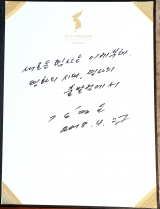 새로운 역사는 이제부터.
평화의 시대, 역사의
출발점에서
김정은
2018. 4. 27